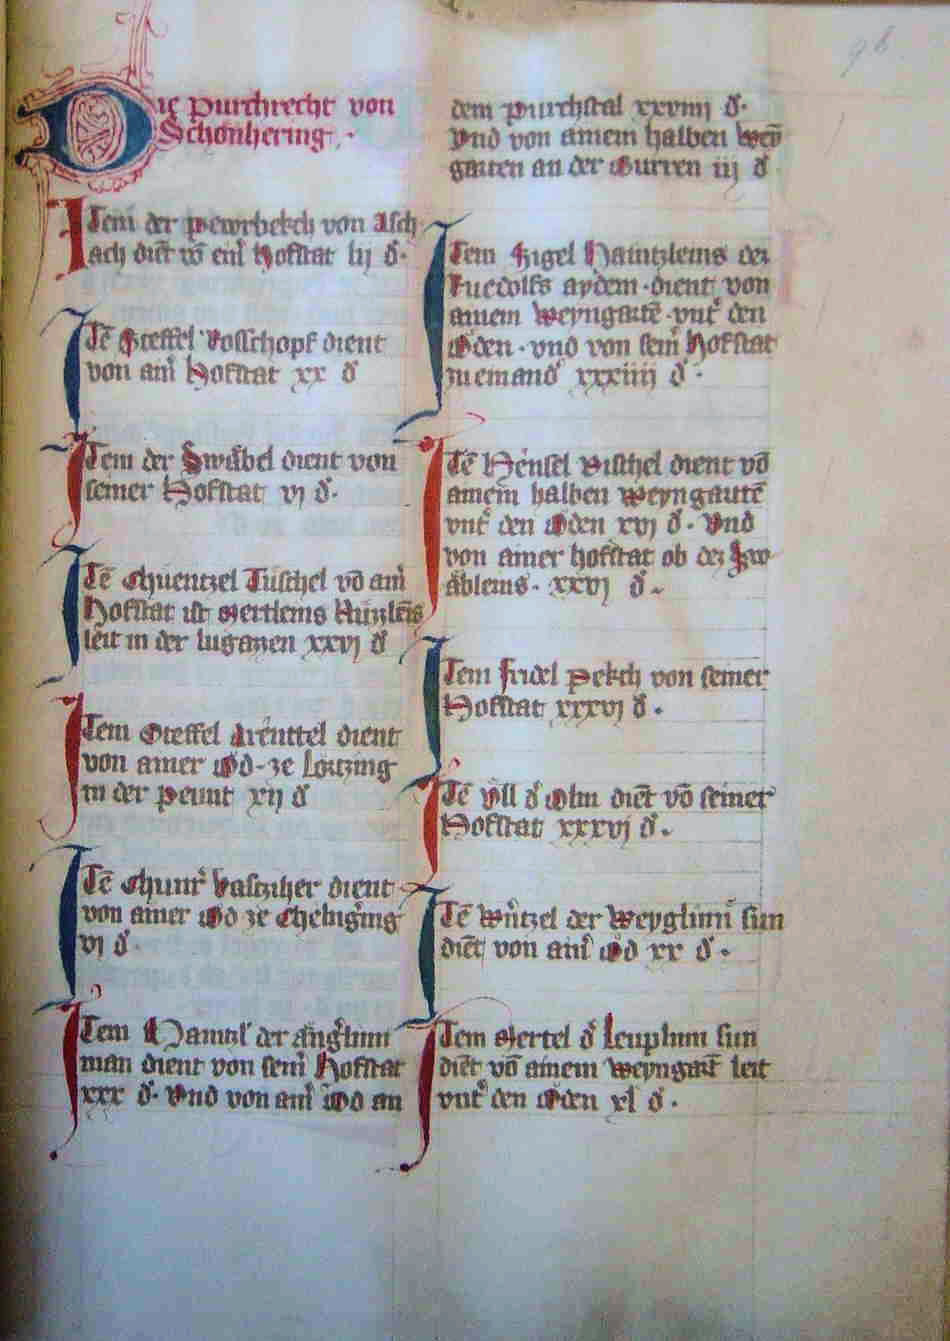 98
Die purchrecht von
Schönhering.
Item der pewrbekch von Asch
ach dien̄t vō ein̄ Hofstat lij d.
Itē Steffel Rosschopf dient
von am̄ Hofstat xx d
Item der Swäbel dient von
seiner Hofstat vj d.
Itē Chüentzel Tüschel vō am̄
Hofstat ist Mertleins
leit in der lugatzen xxvj d
Item Steffel dient
von ainer Ȯd ze
in der peunt xij d
Itē dient
von ainer Ȯd ze
vj d
Item der
man dient von sein̄ Hofstat
xxx d. Vnd von am̄ Ȯd an
dem purchstal xxviiij d.
Vnd von ainem halben wey̅
garten an der Gurren iij d
Item Haintzleins dez
Ruedolfs aydem dient von
ainem weyngartē vnt den
Ȯden. vnd von sein̄ Hofstat
zuemand xxxiiij d.
Itē Hensel Vischel dient vō
ainem halben weyngartē
vnt den Ȯden xvj d. Vnd
von ainer hofstat ob dez Sw
äbleins. xxvj d.
Item Fridel pekch von seiner
Hofstat xxxvj d.
Itē Vll d dien̄t vō seiner
Hofstat xxxvj d.
Itē Wentzel der sun
dien̄t von ain̄ Ȯd xx d.
Item Mertel d sun
dien̄t vō ainem weyngart leit
vnt den Ȯden xl d.